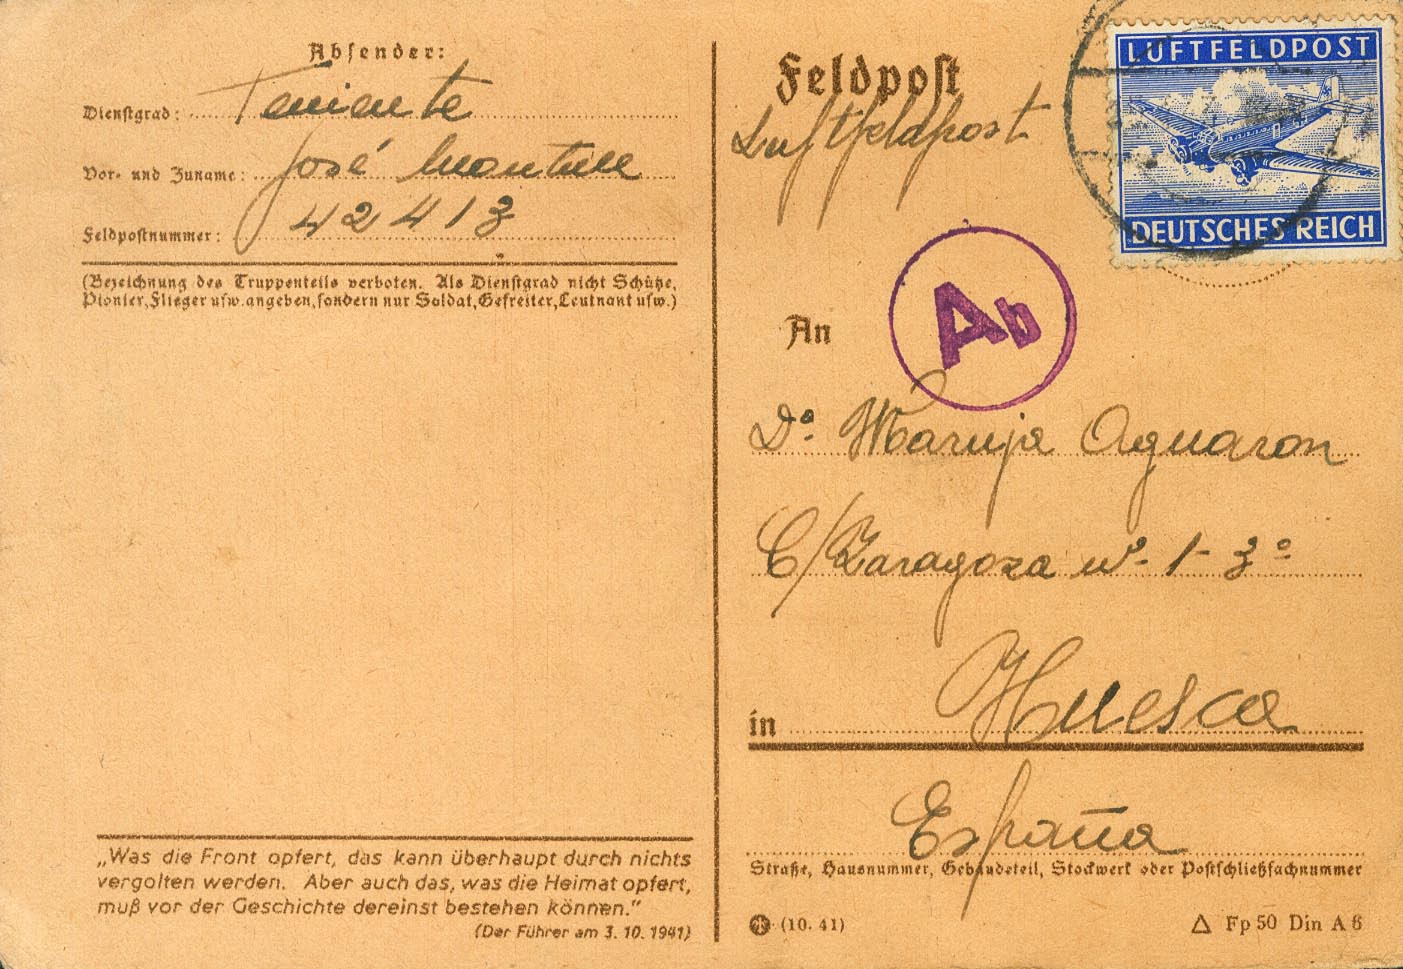 Absender:
Dienstgrad: Teniente
Vor- und Zuname: José
Feldpostnummer: 42413
(Bezeichnung des Truppenteils verboten. Als Dienstgrad nicht Schütze,
Pionier, Flieger usw. angeben, sondern nur Soldat, Gefreiter, Leutnant usw.)
„Was die Front opfert, das kann überhaupt durch nichts
vergolten werden. Aber auch das, was die Heimat opfert,
muß vor der Geschichte dereinst bestehen können.“
(Der Führer am 3. 10. 1941)
Feldpost
Luftfeldpost
LUFTFELDPOST
DEUTSCHES REICH
Ab
An
Dª. Maruja Aguaron
C/ Zaragoza nº- 1- 3º
in Huesca
España
Straße, Hausnummer, Gebäudeteil, Stockwerk oder Postschließfachnummer
(10. 41)
Δ Fp 50 Din A 6